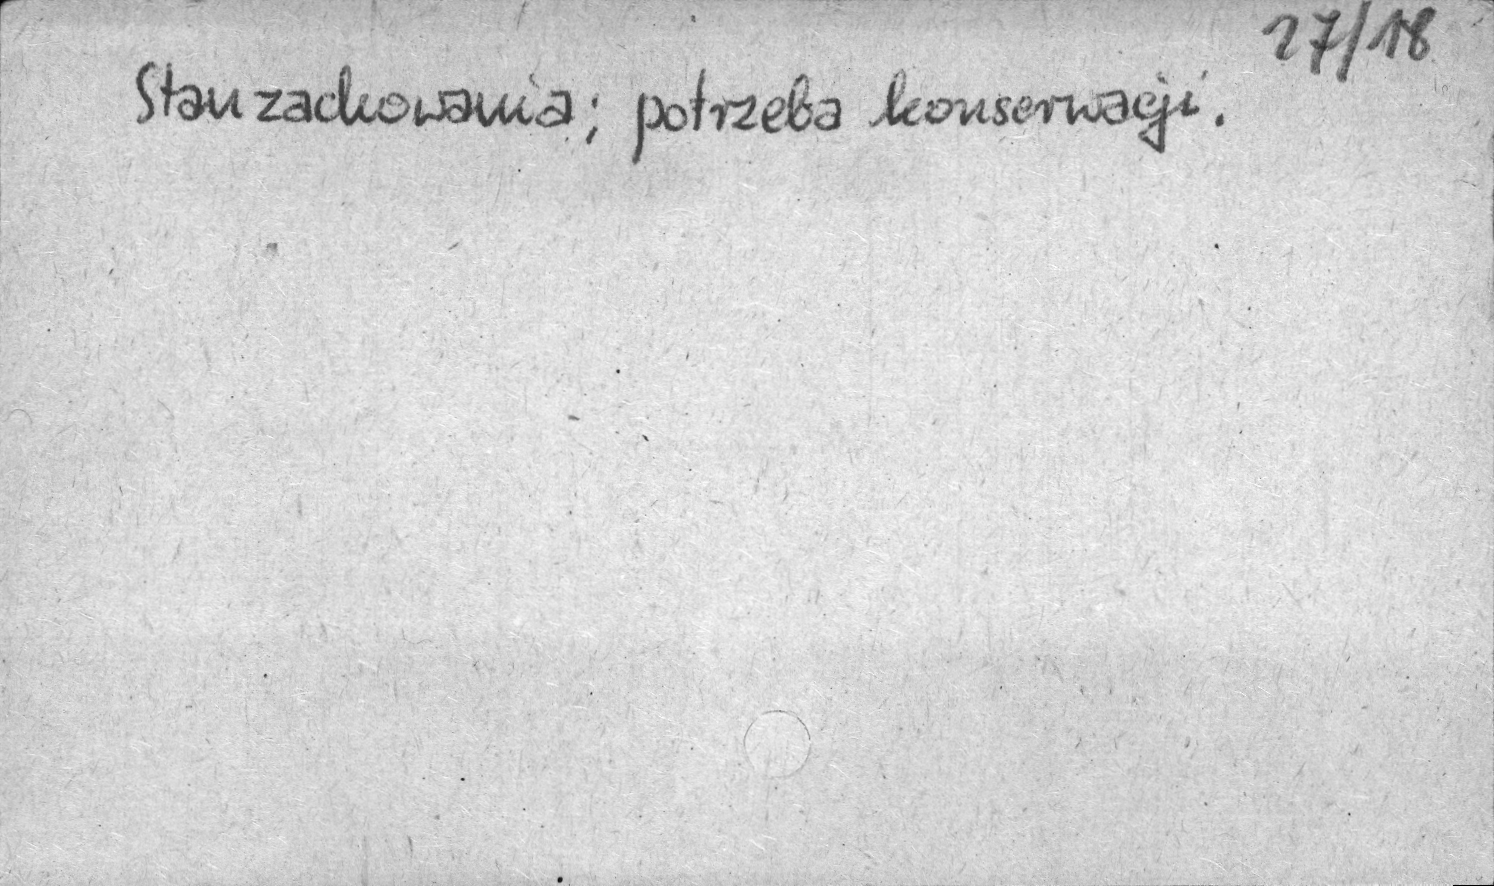 27/18
Stan zachowania; potrzeba konserwacji.